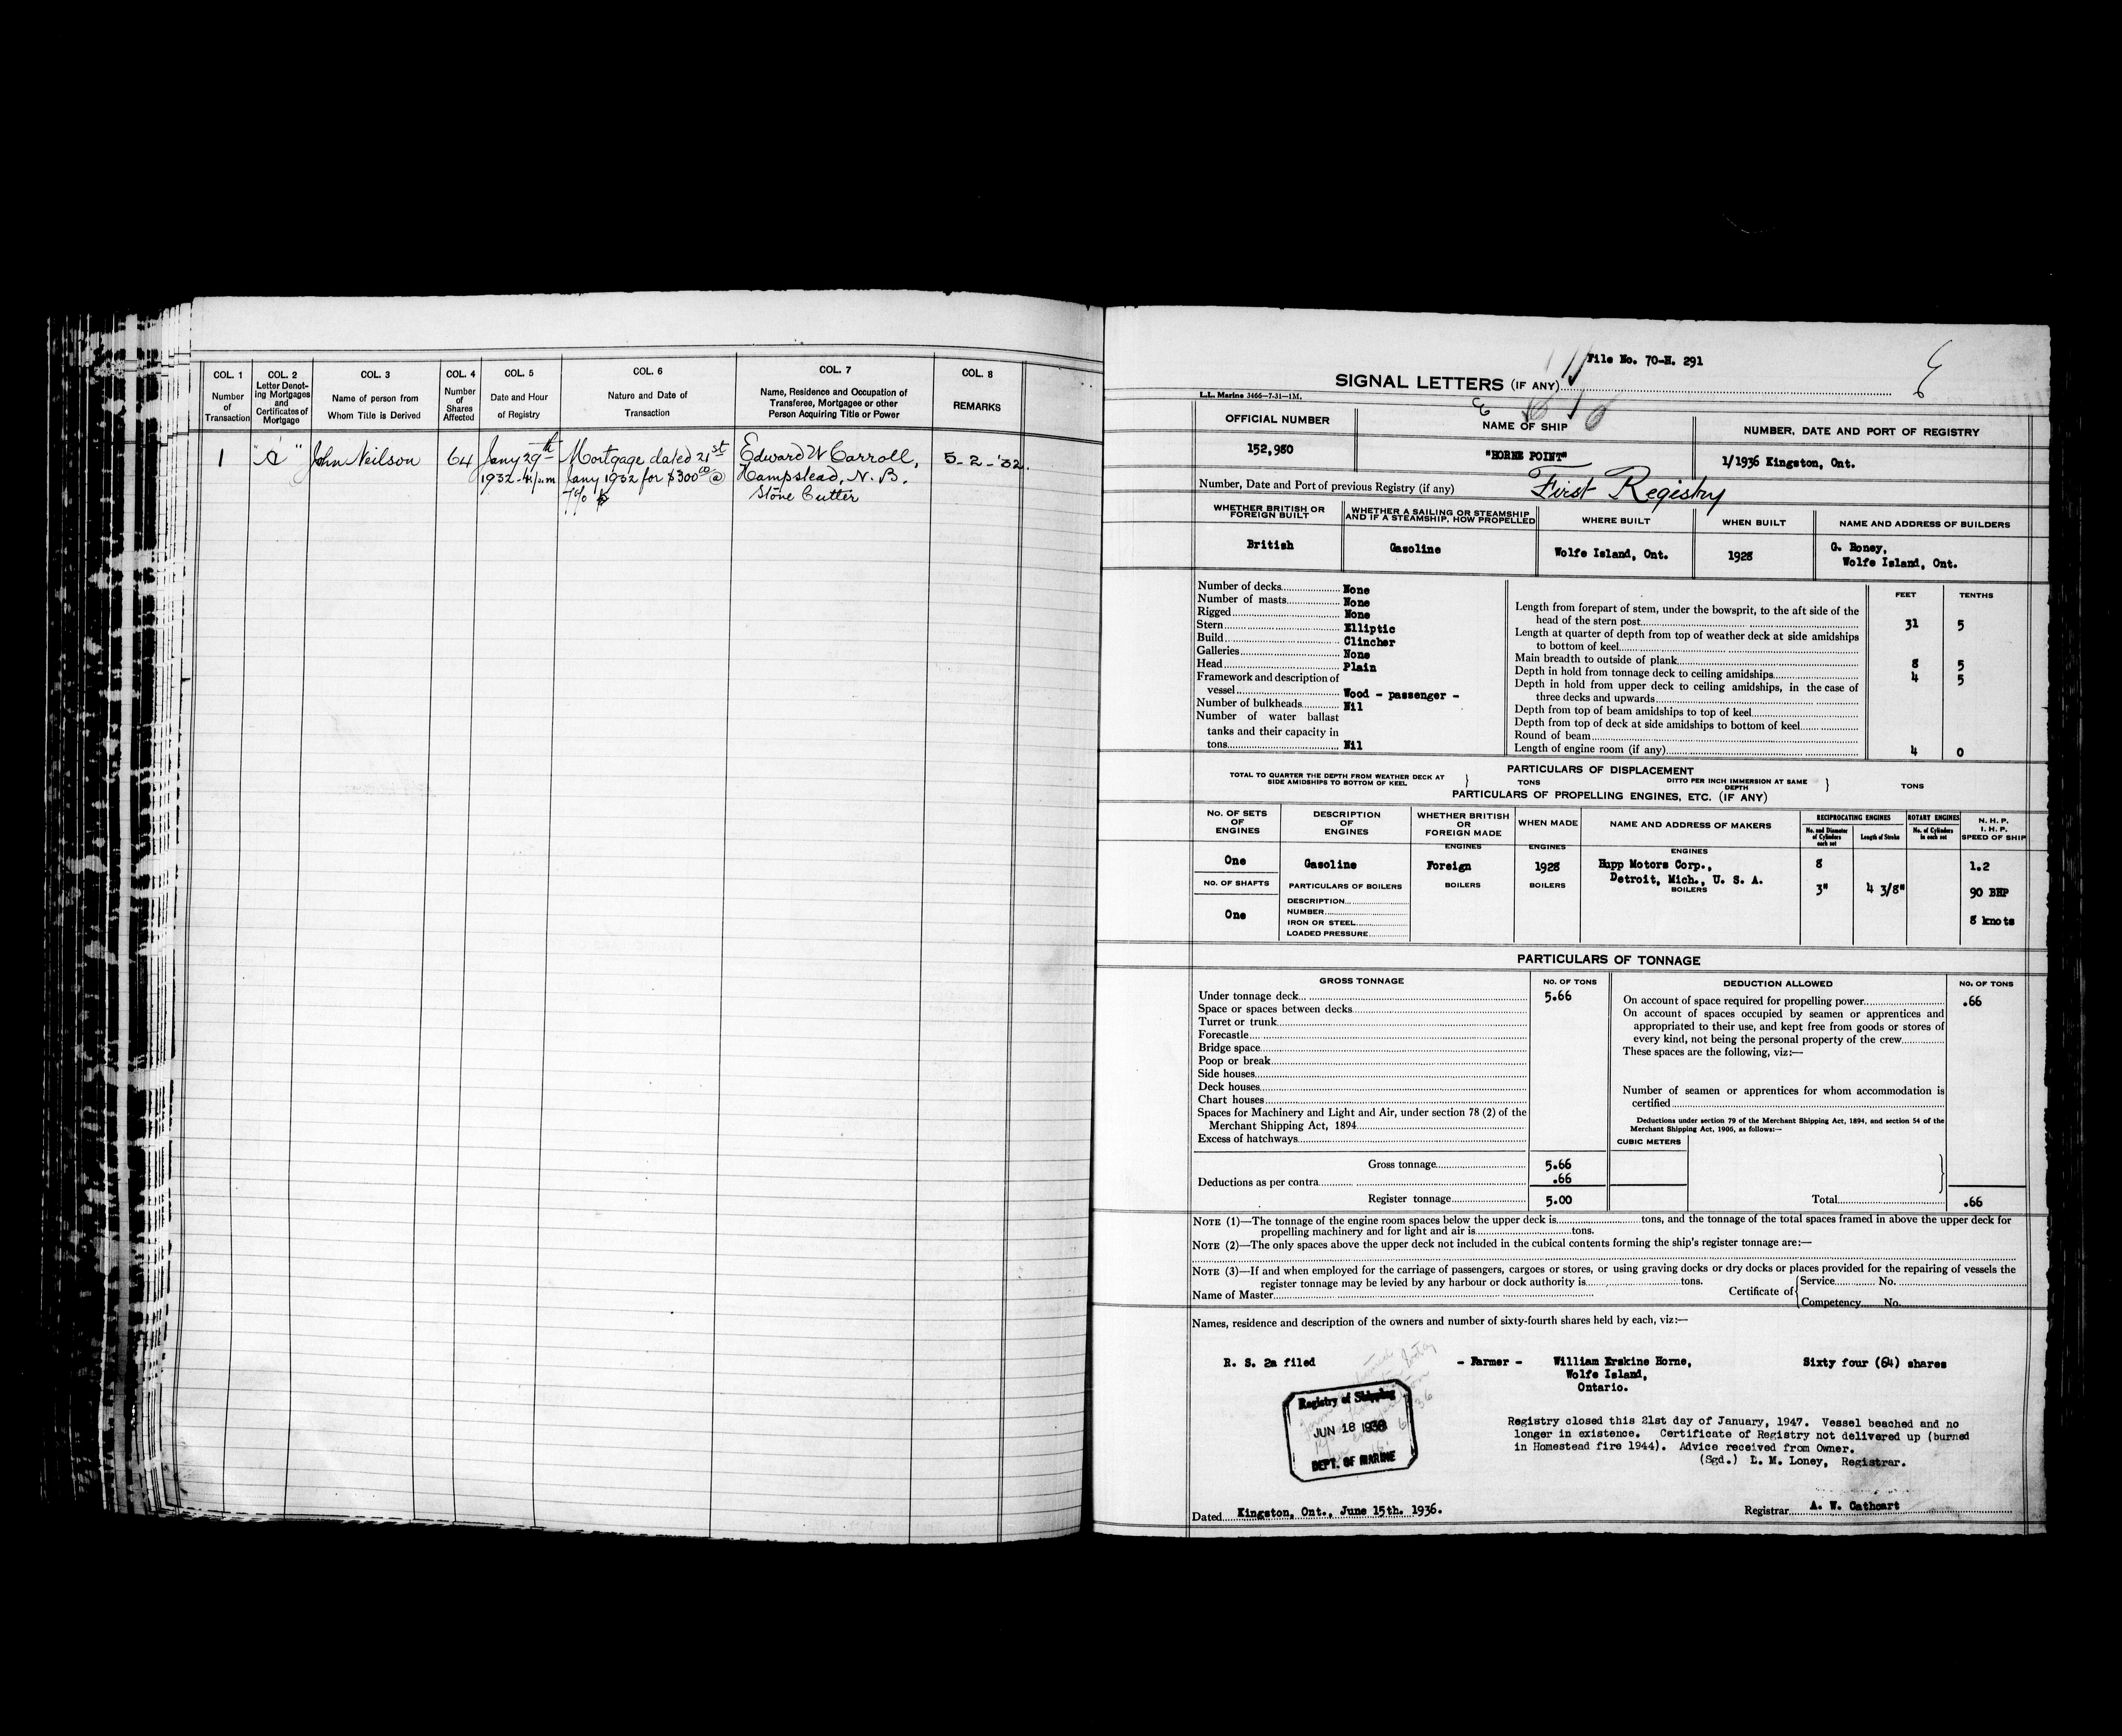 COL. 1 COL. 2 COL. 3 COL. 4 COL. 5 COL. 6 COL. 7 COL. 8
Number of Transaction
Letter Denoting Mortgages and Certificates of Mortgage
Name of person from Whom Title is Derived
Number of Shares Affected
Date and Hour of Registry
Nature and Date of Transaction
Name, Residence and Occupation of Transferee, Mortgagee or other Person Acquiring Title or Power
REMARKS
1 "A" John Neilson 64 Jany 29th Mortgage dated 21st Edward W Carroll, 5-2-'32.
1932-4 p.m Jany 1932 for $300.00 @ Hampstead, N. B.
7% Stone Cutter
File No. 70-H. 291
SIGNAL LETTERS (IF ANY)
L.L. Marine 3466—7-31—1M.
OFFICIAL NUMBER NAME OF SHIP NUMBER, DATE AND PORT OF REGISTRY
152,980 "HORNE POINT" 1/1936 Kingston, Ont.
Number, Date and Port of previous Registry (if any) First Registry
WHETHER BRITISH OR FOREIGN BUILT
WHETHER A SAILING OR STEAMSHIP AND IF A STEAMSHIP, HOW PROPELLED
WHERE BUILT WHEN BUILT NAME AND ADDRESS OF BUILDERS
British Gasoline Wolfe Island, Ont. 1928 G. Roney,
Wolfe Island, Ont.
Number of decks None
Number of masts None
Rigged None
Stern Elliptic
Build Clincher
Galleries None
Head Plain
Framework and description of
vessel Wood - passenger -
Number of bulkheads Nil
Number of water ballast
tanks and their capacity in
tons Nil
FEET TENTHS
Length from forepart of stem, under the bowsprit, to the aft side of the
head of the stern post 31 5
Length at quarter of depth from top of weather deck at side amidships
to bottom of keel
Main breadth to outside of plank 8 5
Depth in hold from tonnage deck to ceiling amidships 4 5
Depth in hold from upper deck to ceiling amidships, in the case of
three decks and upwards
Depth from top of beam amidships to top of keel
Depth from top of deck at side amidships to bottom of keel
Round of beam
Length of engine room (if any) 4 0
PARTICULARS OF DISPLACEMENT
TOTAL TO QUARTER THE DEPTH FROM WEATHER DECK AT SIDE AMIDSHIPS TO BOTTOM OF KEEL } TONS DITTO PER INCH IMMERSION AT SAME DEPTH } TONS
PARTICULARS OF PROPELLING ENGINES, ETC. (IF ANY)
NO. OF SETS OF ENGINES
DESCRIPTION OF ENGINES
WHETHER BRITISH OR FOREIGN MADE
WHEN MADE
NAME AND ADDRESS OF MAKERS
RECIPROCATING ENGINES ROTARY ENGINES
No. and Diameter of Cylinders each set Length of Stroke No. of Cylinders in each set
N. H. P.
I. H. P.
SPEED OF SHIP
ENGINES ENGINES ENGINES
One Gasoline Foreign 1928 Hupp Motors Corp., 8 1.2
Detroit, Mich., U. S. A.
NO. OF SHAFTS PARTICULARS OF BOILERS BOILERS BOILERS BOILERS 3" 4 3/8" 90 BHP
DESCRIPTION
NUMBER
One 8 knots
IRON OR STEEL
LOADED PRESSURE
PARTICULARS OF TONNAGE
GROSS TONNAGE NO. OF TONS DEDUCTION ALLOWED NO. OF TONS
Under tonnage deck 5.66
Space or spaces between decks
Turret or trunk
Forecastle
Bridge space
Poop or break
Side houses
Deck houses
Chart houses
Spaces for Machinery and Light and Air, under section 78 (2) of the
Merchant Shipping Act, 1894
Excess of hatchways
Gross tonnage 5.66
Deductions as per contra .66
Register tonnage 5.00
On account of space required for propelling power .66
On account of spaces occupied by seamen or apprentices and
appropriated to their use, and kept free from goods or stores of
every kind, not being the personal property of the crew
These spaces are the following, viz:—
Number of seamen or apprentices for whom accommodation is
certified
Deductions under section 79 of the Merchant Shipping Act, 1894, and section 54 of the
Merchant Shipping Act, 1906, as follows:—
CUBIC METERS
Total .66
NOTE (1)—The tonnage of the engine room spaces below the upper deck is tons, and the tonnage of the total spaces framed in above the upper deck for
propelling machinery and for light and air is tons.
NOTE (2)—The only spaces above the upper deck not included in the cubical contents forming the ship's register tonnage are:—
NOTE (3)—If and when employed for the carriage of passengers, cargoes or stores, or using graving docks or dry docks or places provided for the repairing of vessels the
register tonnage may be levied by any harbour or dock authority is tons.
Name of Master Certificate of { Service No.
Competency No.
Names, residence and description of the owners and number of sixty-fourth shares held by each, viz:—
R. S. 2a filed - Farmer - William Erskine Horne, Sixty four (64) shares
Wolfe Island,
Ontario.
Registry of Shipping
JUN 18 1936
DEPT. OF MARINE
Registry closed this 21st day of January, 1947. Vessel beached and no
longer in existence. Certificate of Registry not delivered up (burned
in Homestead fire 1944). Advice received from Owner.
(Sgd.) L. M. Loney, Registrar.
Dated Kingston, Ont., June 15th. 1936.
Registrar A. W. Cathcart